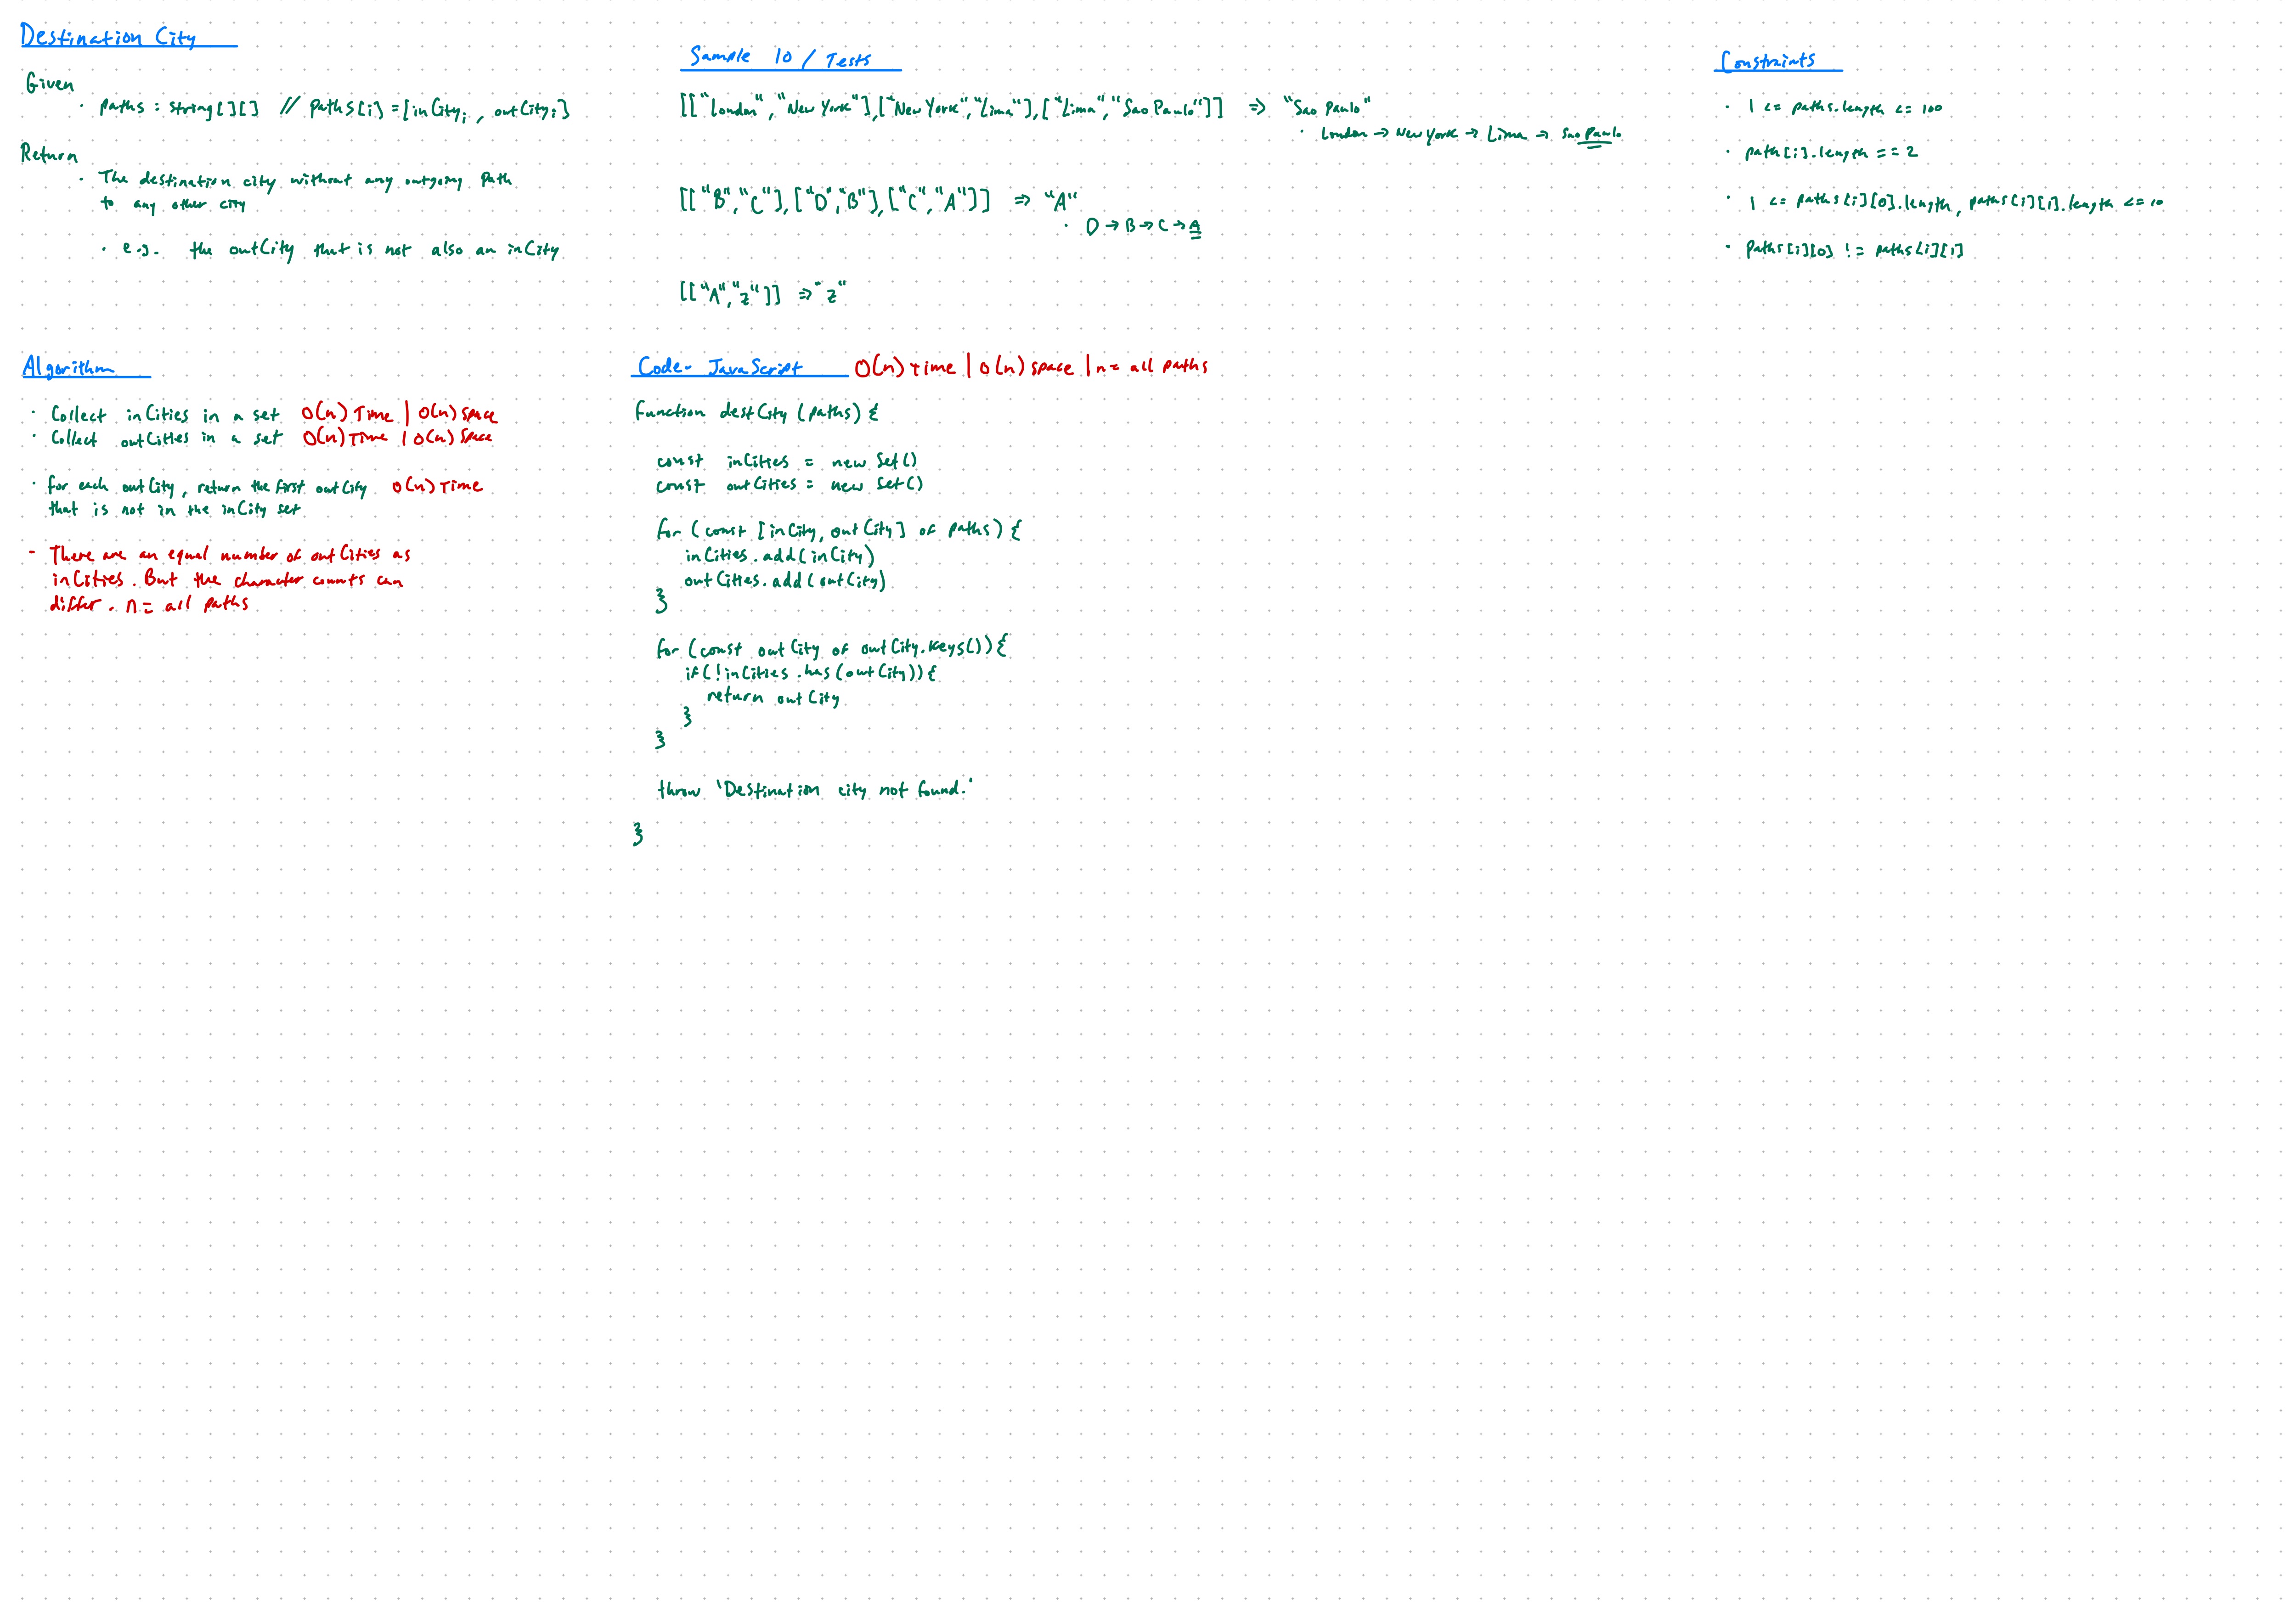 Destination City
Given
· paths : string[][] // paths[i] = [inCityᵢ, outCityᵢ]
Return
· The destination city without any outgoing path
to any other city
· e.g. the outCity that is not also an inCity
Sample IO / Tests
[["London","New York"],["New York","Lima"],["Lima","Sao Paulo"]] => "Sao Paulo"
· London → New York → Lima → Sao Paulo
[["B","C"],["D","B"],["C","A"]] => "A"
· D → B → C → A
[["A","Z"]] => "Z"
Constraints
· 1 <= paths.length <= 100
· path[i].length == 2
· 1 <= paths[i][0].length, paths[i][1].length <= 10
· paths[i][0] != paths[i][1]
Algorithm
· Collect inCities in a set O(n) Time | O(n) Space
· Collect outCities in a set O(n) Time | O(n) Space
· for each outCity, return the first outCity O(n) Time
that is not in the inCity set
- There are an equal number of outCities as
inCities. But the character counts can
differ. n = all paths
Code - JavaScript O(n) time | O(n) space | n = all paths
function destCity (paths) {
const inCities = new Set()
const outCities = new Set()
for (const [inCity, outCity] of paths) {
inCities.add(inCity)
outCities.add(outCity)
}
for (const outCity of outCity.keys()) {
if (!inCities.has(outCity)) {
return outCity
}
}
throw 'Destination city not found.'
}